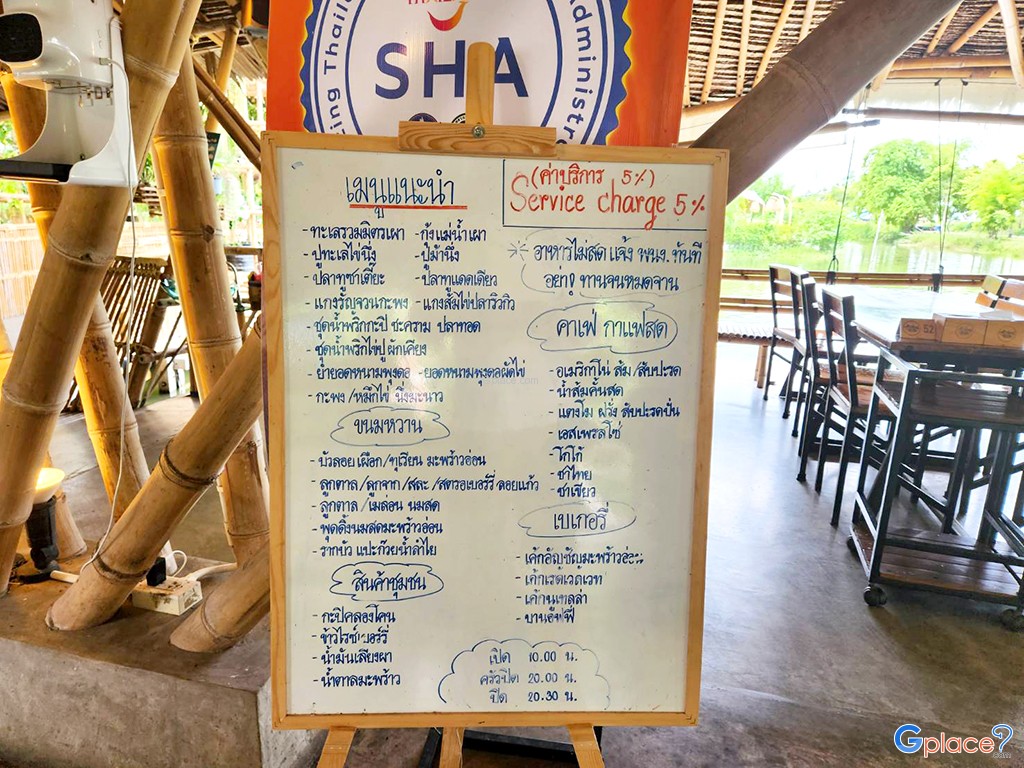 SHA
ing Thail
Administr
เมนูแนะนำ
(ค่าบริการ 5%)
Service charge 5%
- ทะเลรวมมิตรเผา - กุ้งแม่น้ำเผา
- ปูทะเลไข่นึ่ง - ปูม้านึ่ง
- ปลาทูซาเตี๊ยะ - ปลาทูแดดเดียว
- แกงรัญจวนกะพง - แกงส้มไข่ปลาริวกิว
- ชุดน้ำพริกกะปิ ชะคราม ปลาทอด
- ชุดน้ำพริกไข่ปู ผักเคียง
- ยำยอดหนามพุงดอ - ยอดหนามพุงดอผัดไข่
- กะพง / หมึกไข่ นึ่งมะนาว
ขนมหวาน
- บัวลอยเผือก/ทุเรียน มะพร้าวอ่อน
- ลูกตาล/ลูกจาก/สละ/สตรอเบอร์รี่ ลอยแก้ว
- ลูกตาล/เมล่อน นมสด
- พุดดิ้งนมสดมะพร้าวอ่อน
- รากบัว แปะก๊วยน้ำลำไย
สินค้าชุมชน
- กะปิคลองโคน
- ข้าวไรซ์เบอร์รี่
- น้ำมันเลียงผา
- น้ำตาลมะพร้าว
อาหารไม่สด แจ้ง พนง. ทันที
อย่า! ทานจนหมดจาน
คาเฟ่ กาแฟสด
- อเมริกาโน่ ส้ม/สับปะรด
- น้ำส้มคั้นสด
- แตงโม ฝรั่ง สับปะรดปั่น
- เอสเพรสโซ่
- โกโก้
- ชาไทย
- ชาเขียว
เบเกอรี่
- เค้กอัญชัญมะพร้าวอ่อน
- เค้กเรดเวลเวท
- เค้กนูเทลล่า
- บานอฟฟี่
เปิด 10.00 น.
ครัวปิด 20.00 น.
ปิด 20.30 น.
52
Gplace
.com